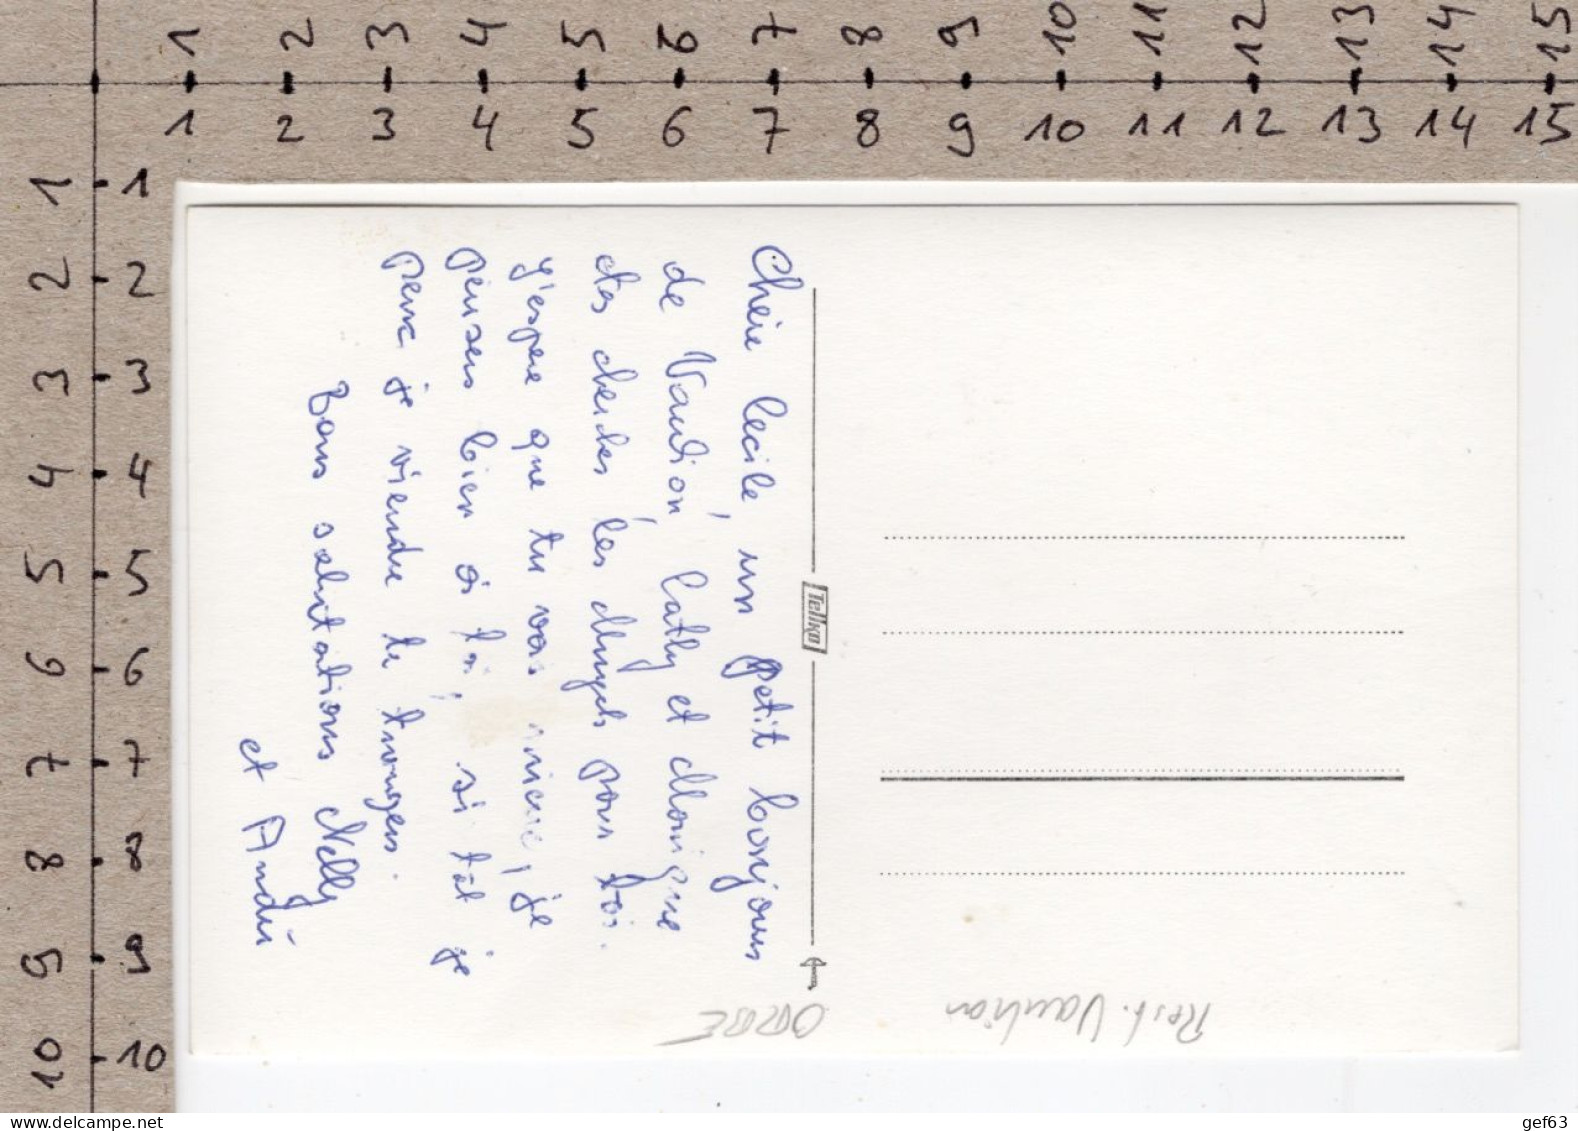 1 2 3 4 5 6 7 8 9 10 11 12 13 14 15
1 2 3 4 5 6 7 8 9 10 11 12 13 14 15
1 1
2 2
3 3
4 4
5 5
6 6
7 7
8 8
9 9
10 10
Chère Cécile, un petit bonjour
de Vaulion, Cathy et Monique
des cherches, les Muguets pour toi.
j'espère que tu vas mieux, je
penses bien à toi, si tôt je
peux je viendre te trouger.
Bons salutations Nelly
et André
Tellko
ORBE
Rest. Vaulion
www.delcampe.net
gef63